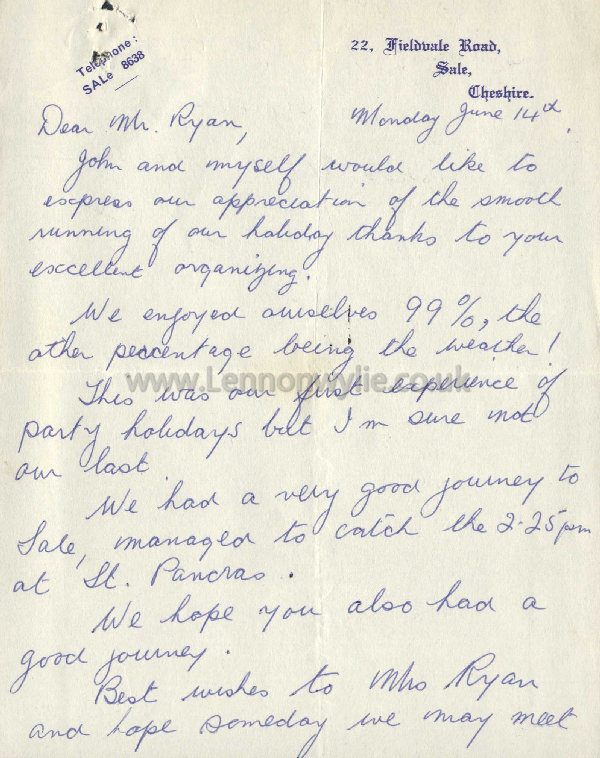 Telephone:
SALe 8638
22, Fieldvale Road,
Sale,
Cheshire.
Monday June 14th.
Dear Mr. Ryan,
John and myself would like to
express our appreciation of the smooth
running of our holiday thanks to your
excellent organizing.
We enjoyed ourselves 99%, the
other percentage being the weather!
www.Lennonwylie.co.uk
This was our first experience of
party holidays but I'm sure not
our last.
We had a very good journey to
Sale, managed to catch the 2.25pm
at St. Pancras.
We hope you also had a
good journey.
Best wishes to Mrs Ryan
and hope someday we may meet